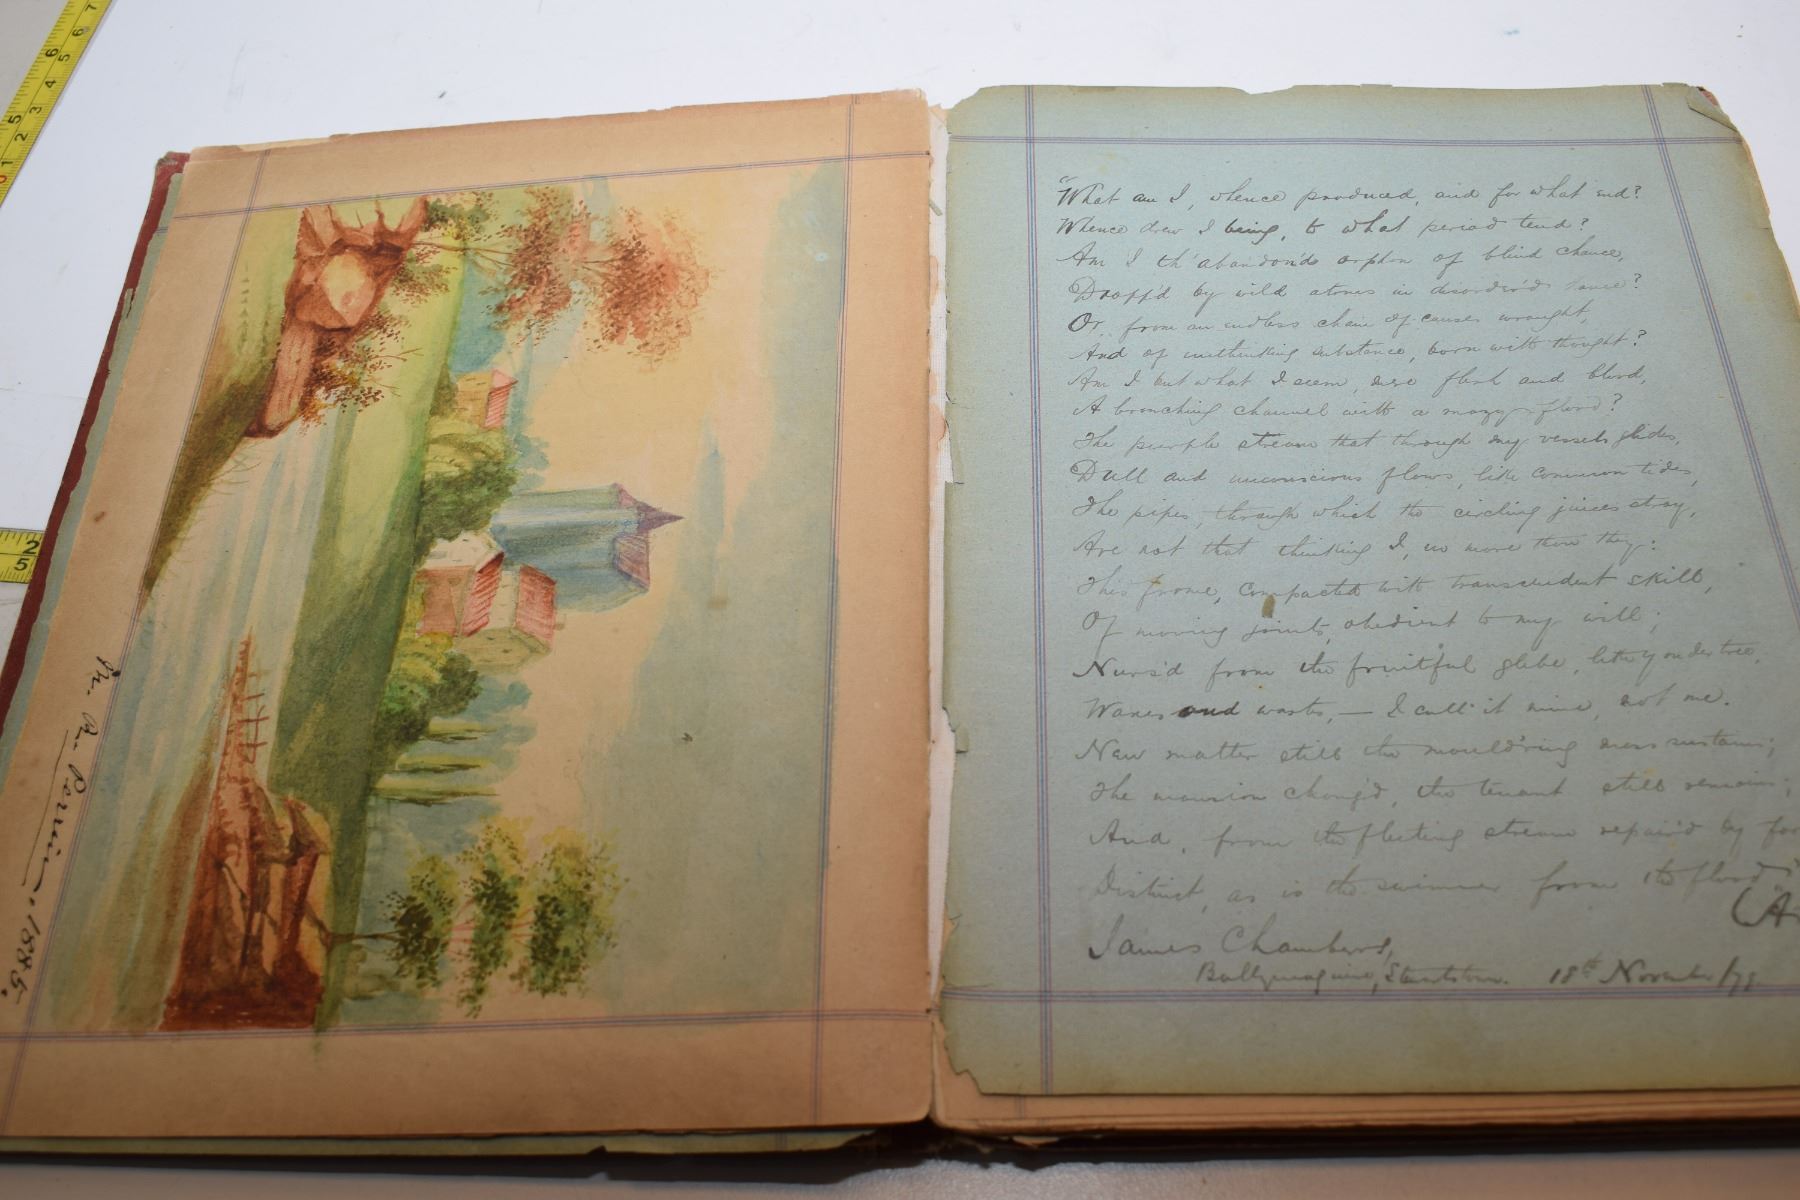 M. A. Perrin. 1885.
"What am I, whence produced, and for what end?
Whence drew I being, to what period tend?
Am I th' abandon'd orphan of blind chance,
Dropp'd by wild atoms in disorder'd dance?
Or from an endless chain of causes wrought,
And of unthinking substance, born with thought?
Am I but what I seem, mere flesh and blood,
A branching channel with a mazy flood?
The purple stream that through my vessels glides,
Dull and unconscious flows, like common tides,
The pipes, through which the circling juices stray,
Are not that thinking I, no more than they:
This frame, compacted with transcendent skill,
Of moving joints, obedient to my will;
Nurs'd from the fruitful glebe, like yonder tree,
Waxes and wastes, — I call it mine, not me.
New matter still the mould'ring mass sustains;
The mansion chang'd, the tenant still remains;
And, from the fleeting stream repair'd by fo
Distinct, as is the swimmer from the flood"
(A
James Chambers,
Ballymaguire, Stewartstown. 18th November /79
2 5
0 1 2 3 4 5 6 7
5 6